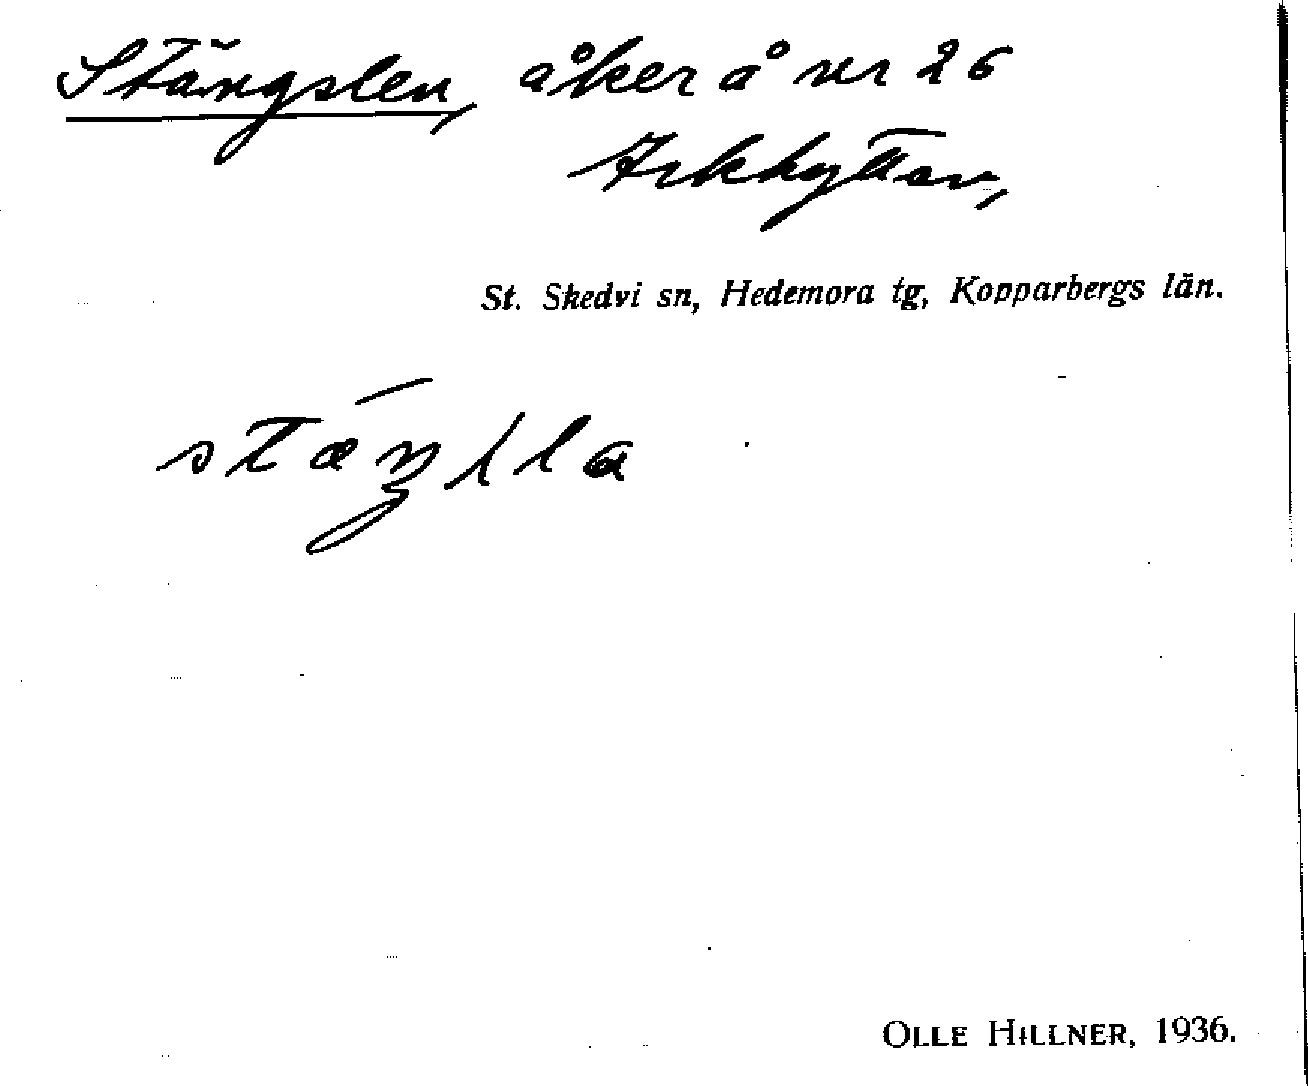 Stängslen, åker å nr 26
Arkhyttan,
St. Skedvi sn, Hedemora tg, Kopparbergs län.
OLLE HILLNER, 1936.